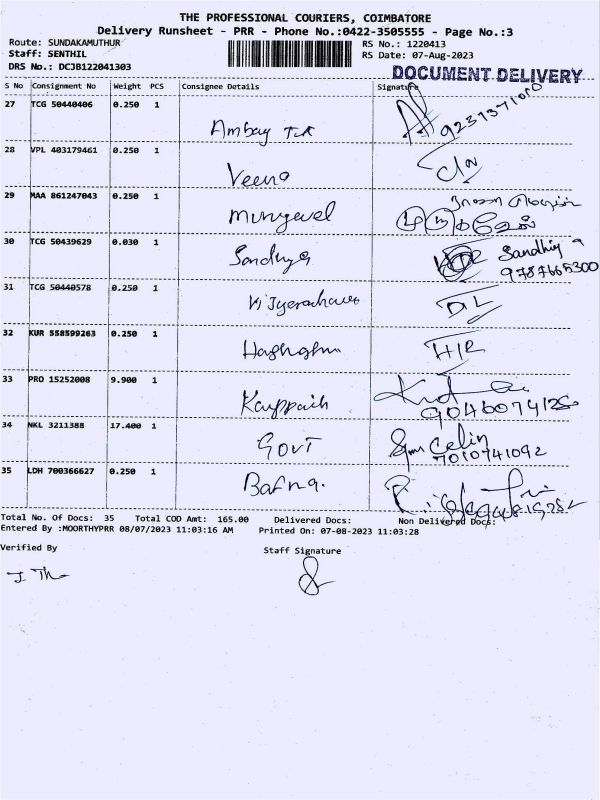 THE PROFESSIONAL COURIERS, COIMBATORE
Delivery Runsheet - PRR - Phone No.:0422-3505555 - Page No.:3
Route: SUNDAKAMUTHUR RS No.: 1220413
Staff: SENTHIL RS Date: 07-Aug-2023
DRS No.: DCJB122041303
DOCUMENT DELIVERY
S No Consignment No Weight PCS Consignee Details Signature
27 TCG 50440406 0.250 1 Ambay
28 VPL 403179461 0.250 1 Veena
29 MAA 861247043 0.250 1 Murugavel முருகவேல்
30 TCG 50439629 0.030 1 Sandhya Sandhiya
9787665300
31 TCG 50440578 0.250 1
32 KUR 558599263 0.250 1 H/R
33 PRO 15252008 9.900 1 Karppaih
9046074126
34 NKL 3211388 17.400 1 GOVT Celin
7010741092
35 LDH 700366627 0.250 1 Bafna.
Total No. Of Docs: 35 Total COD Amt: 165.00 Delivered Docs: Non Delivered Docs:
Entered By :MOORTHYPRR 08/07/2023 11:03:16 AM Printed On: 07-08-2023 11:03:28
Verified By Staff Signature